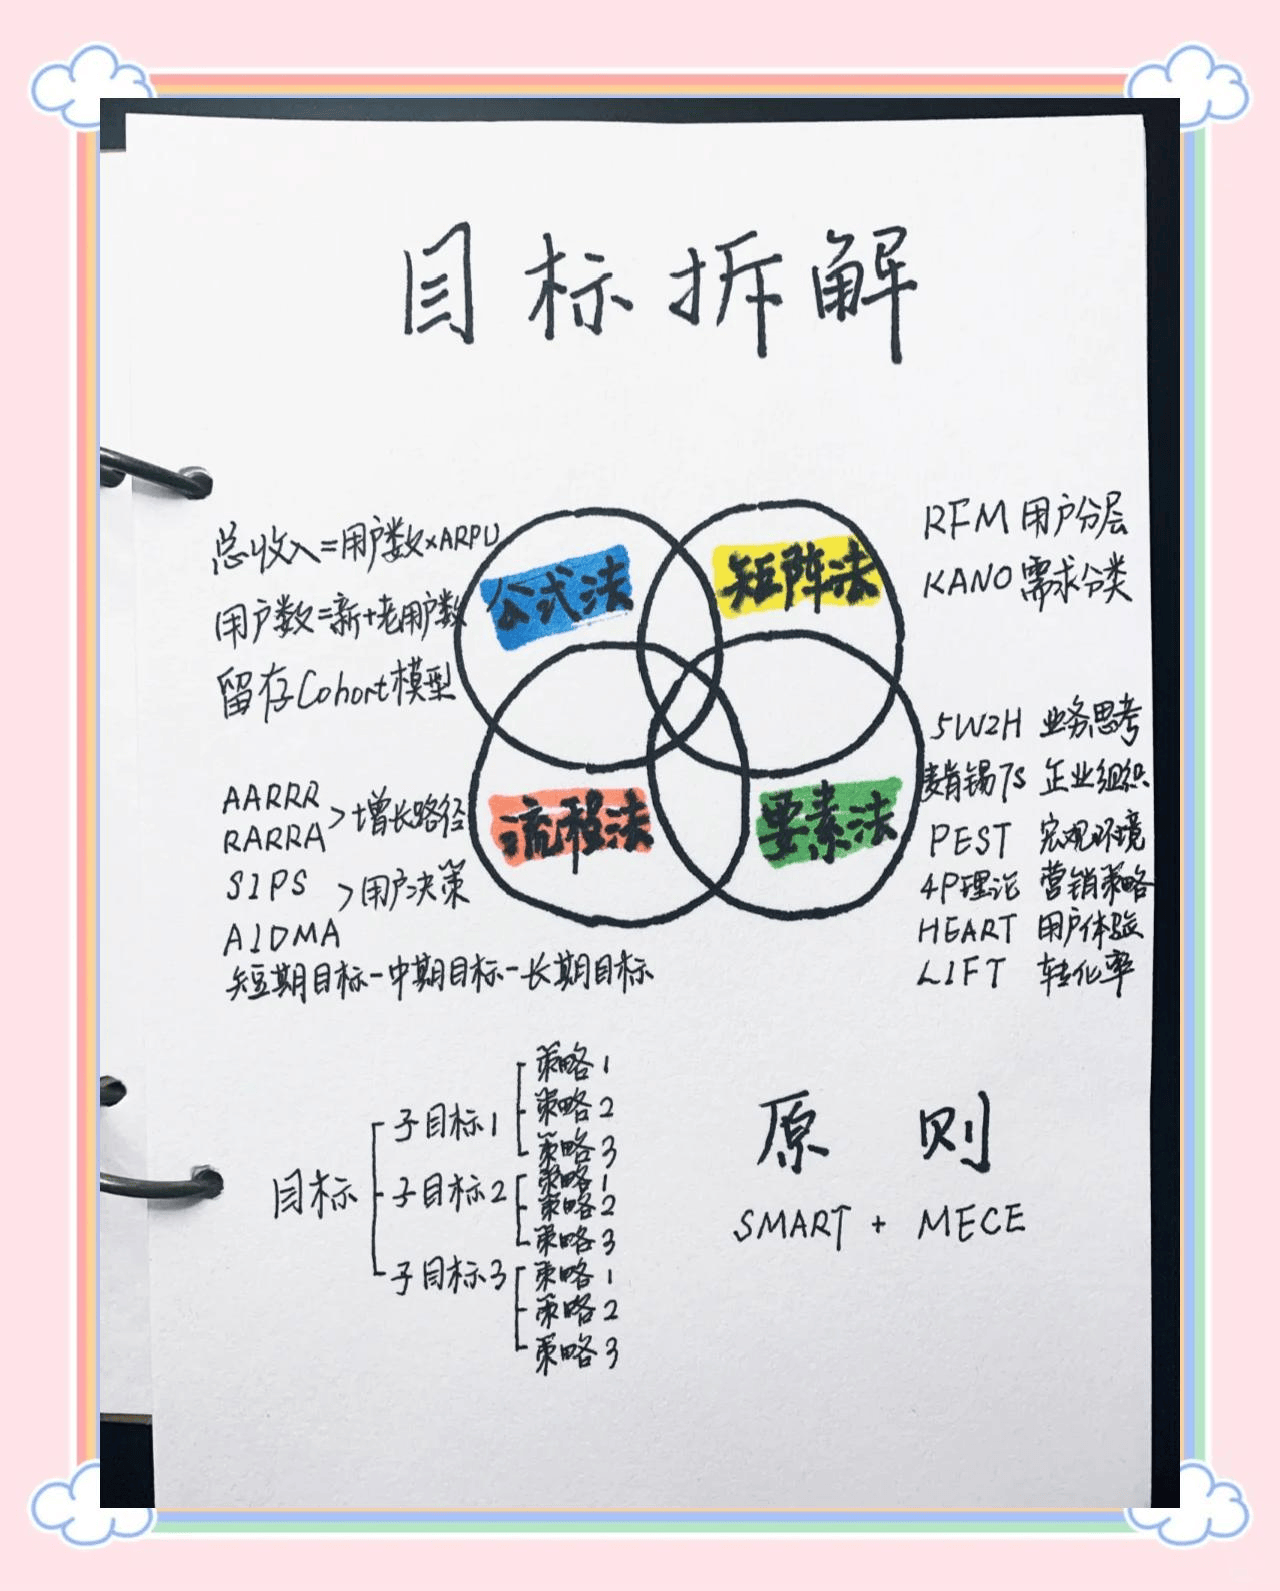 目标拆解
总收入=用户数×ARPU
用户数=新+老用户数
留存Cohort模型
公式法
矩阵法
RFM 用户分层
KANO 需求分类
AARRR
RARRA
> 增长路径
SIPS
> 用户决策
AIDMA
短期目标-中期目标-长期目标
流程法
要素法
5W2H 业务思考
麦肯锡7S 企业组织
PEST 宏观环境
4P理论 营销策略
HEART 用户体验
LIFT 转化率
目标
子目标1
策略1
策略2
策略3
子目标2
策略1
策略2
策略3
子目标3
策略1
策略2
策略3
原则
SMART + MECE